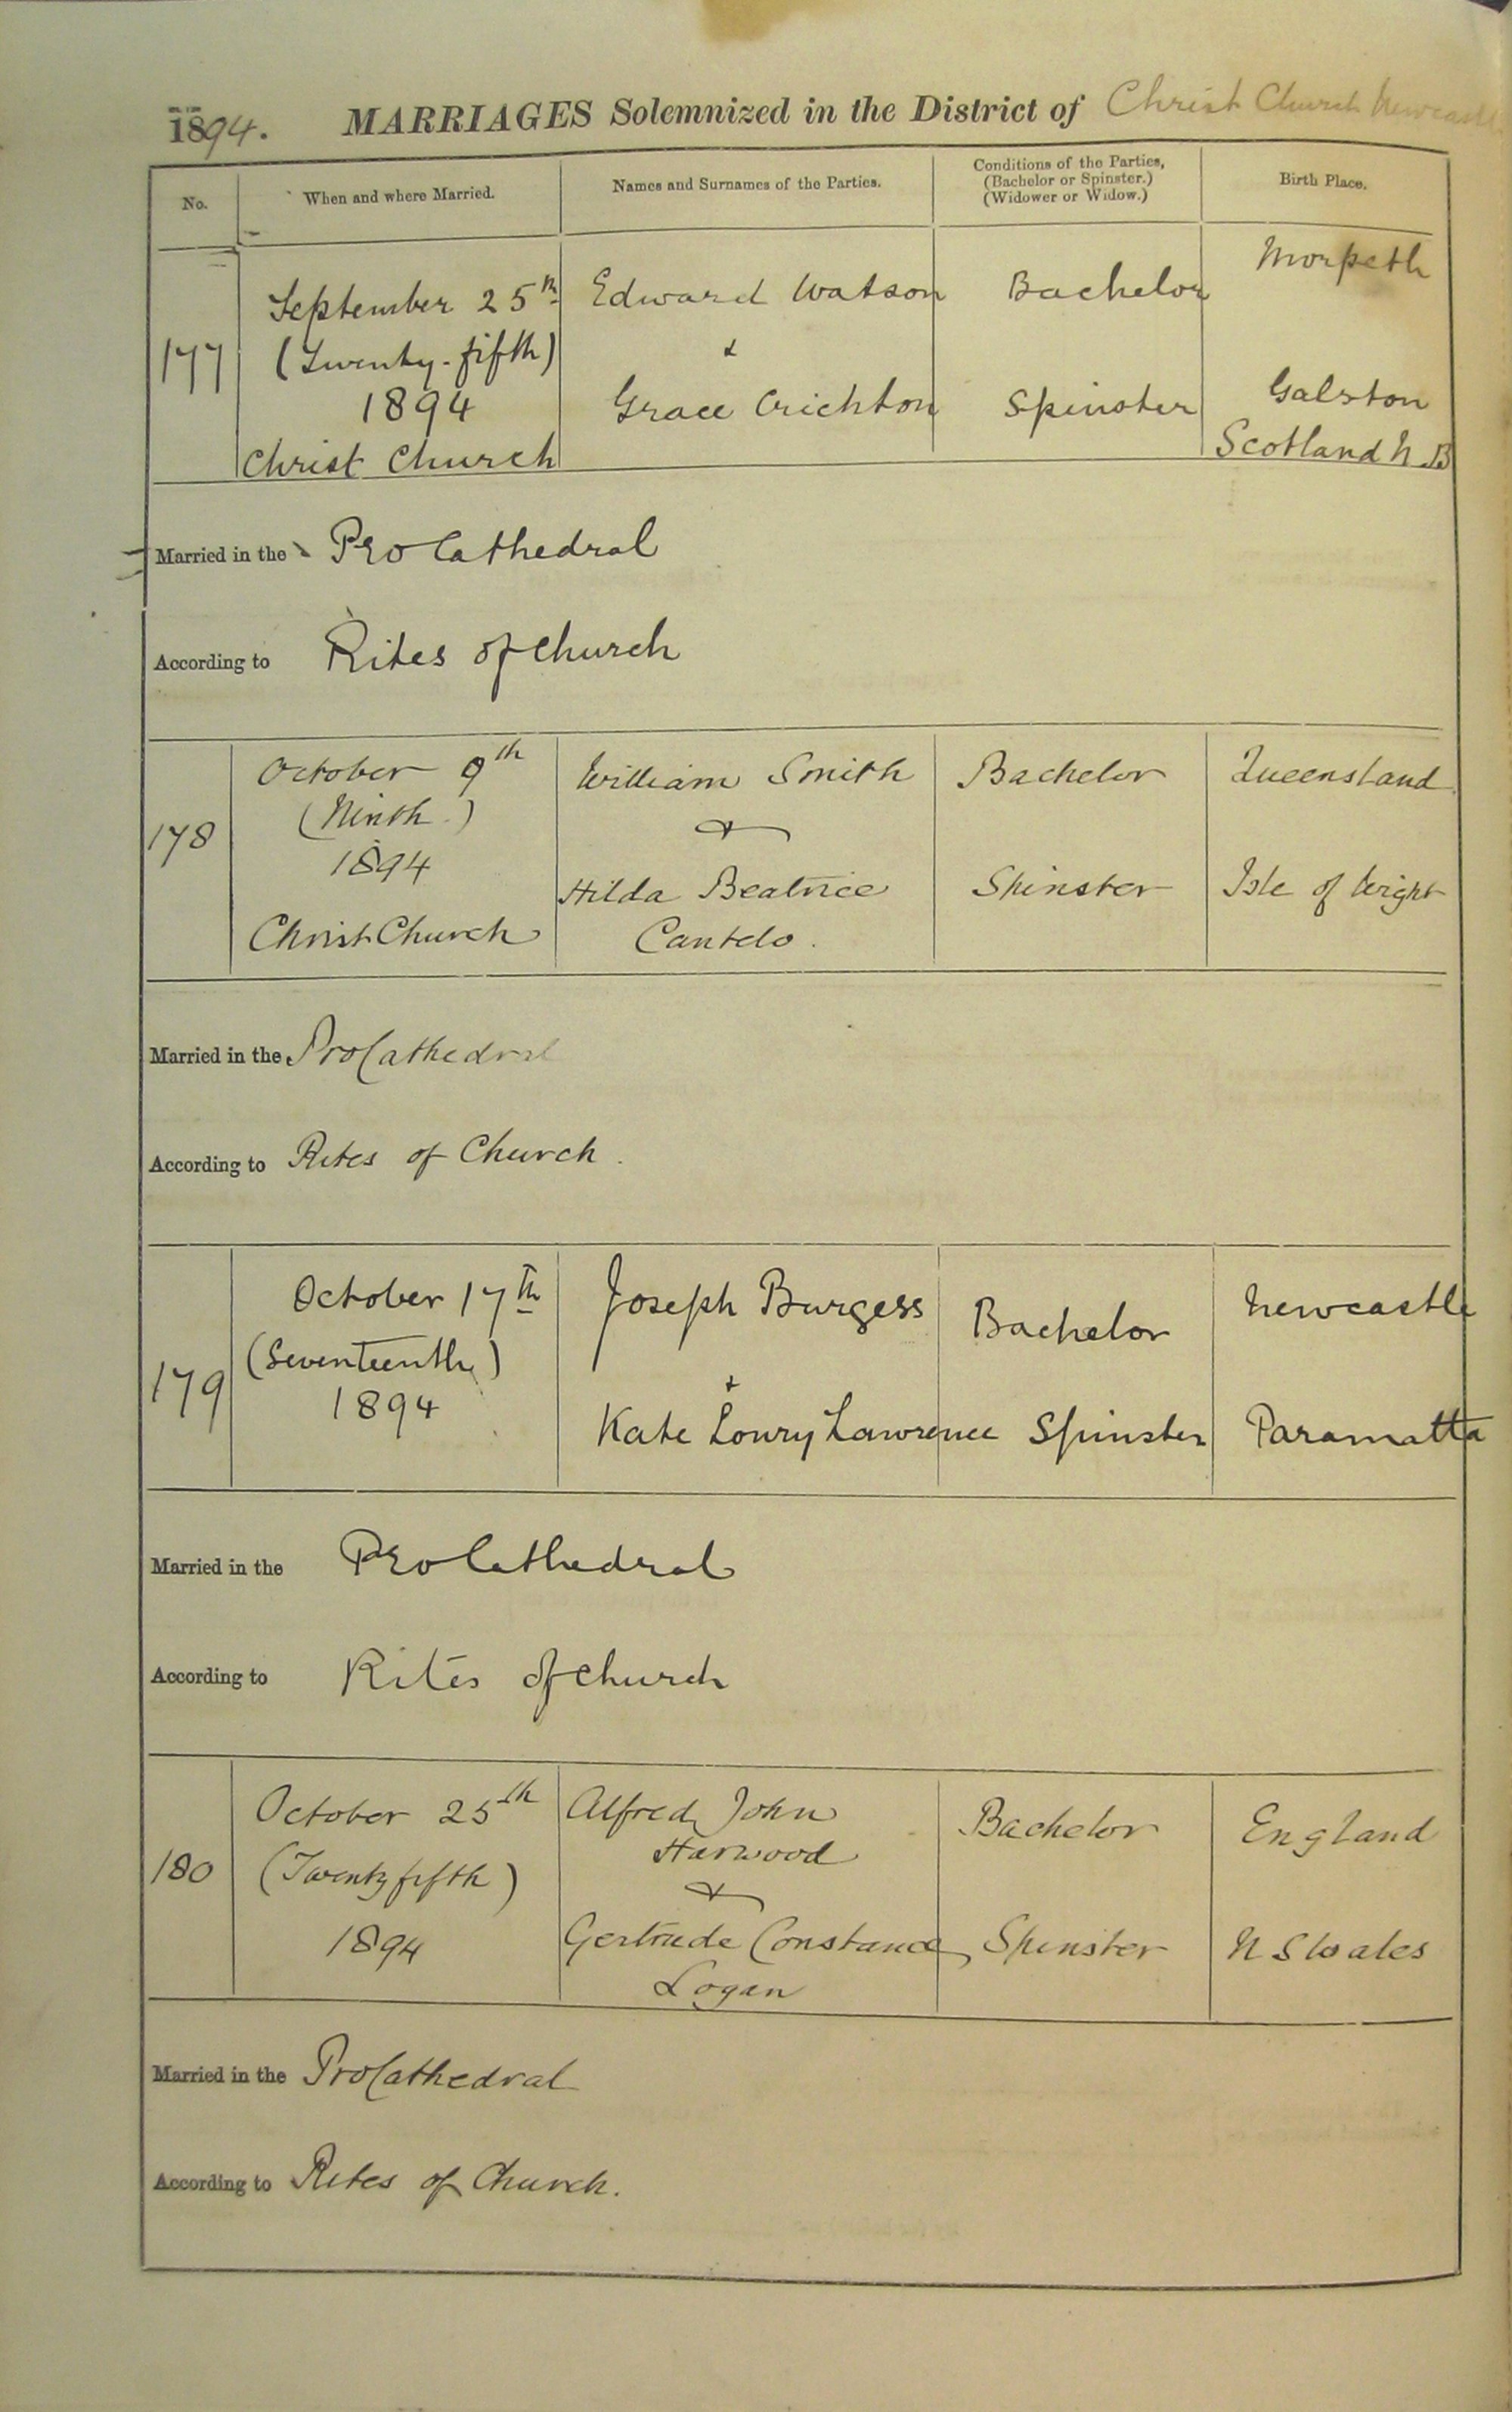 1894. MARRIAGES Solemnized in the District of Christ Church Newcastle
No. When and where Married. Names and Surnames of the Parties. Conditions of the Parties, (Bachelor or Spinster.) (Widower or Widow.) Birth Place.
177
September 25th
(Twenty-fifth)
1894
Christ Church
Edward Watson
&
Grace Crichton
Bachelor
Spinster
Morpeth
Galston
Scotland N.B
Married in the Pro Cathedral
According to Rites of Church
178
October 9th
(Ninth.)
1894
Christ Church
William Smith
&
Hilda Beatrice
Cantelo.
Bachelor
Spinster
Queensland
Isle of Wight
Married in the ProCathedral
According to Rites of Church.
179
October 17th
(Seventeenth)
1894
Joseph Burgess
&
Kate Lowry Lawrence
Bachelor
Spinster
Newcastle
Paramatta
Married in the Pro Cathedral
According to Rites of Church
180
October 25th
(Twenty fifth)
1894
Alfred John
Harwood
&
Gertrude Constance
Logan
Bachelor
Spinster
England
N S Wales
Married in the ProCathedral
According to Rites of Church.